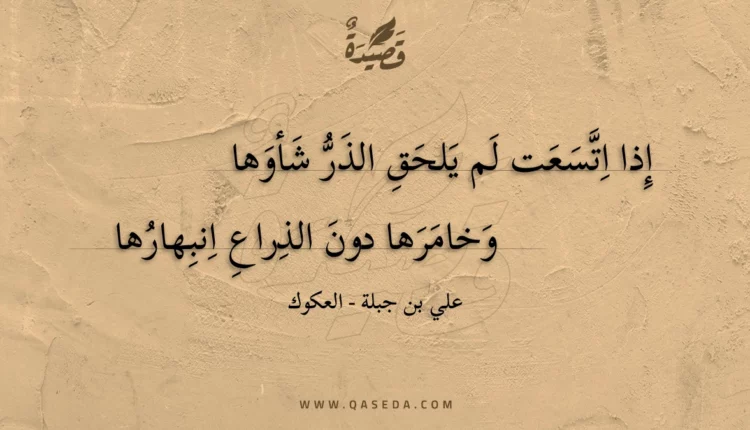 قَصِيدَةٌ
إِذا اِتَّسَعَت لَم يَلحَقِ الذَرُّ شَأوَها
وَخامَرَها دونَ الذِراعِ اِنبِهارُها
علي بن جبلة - العكوك
WWW.QASEDA.COM